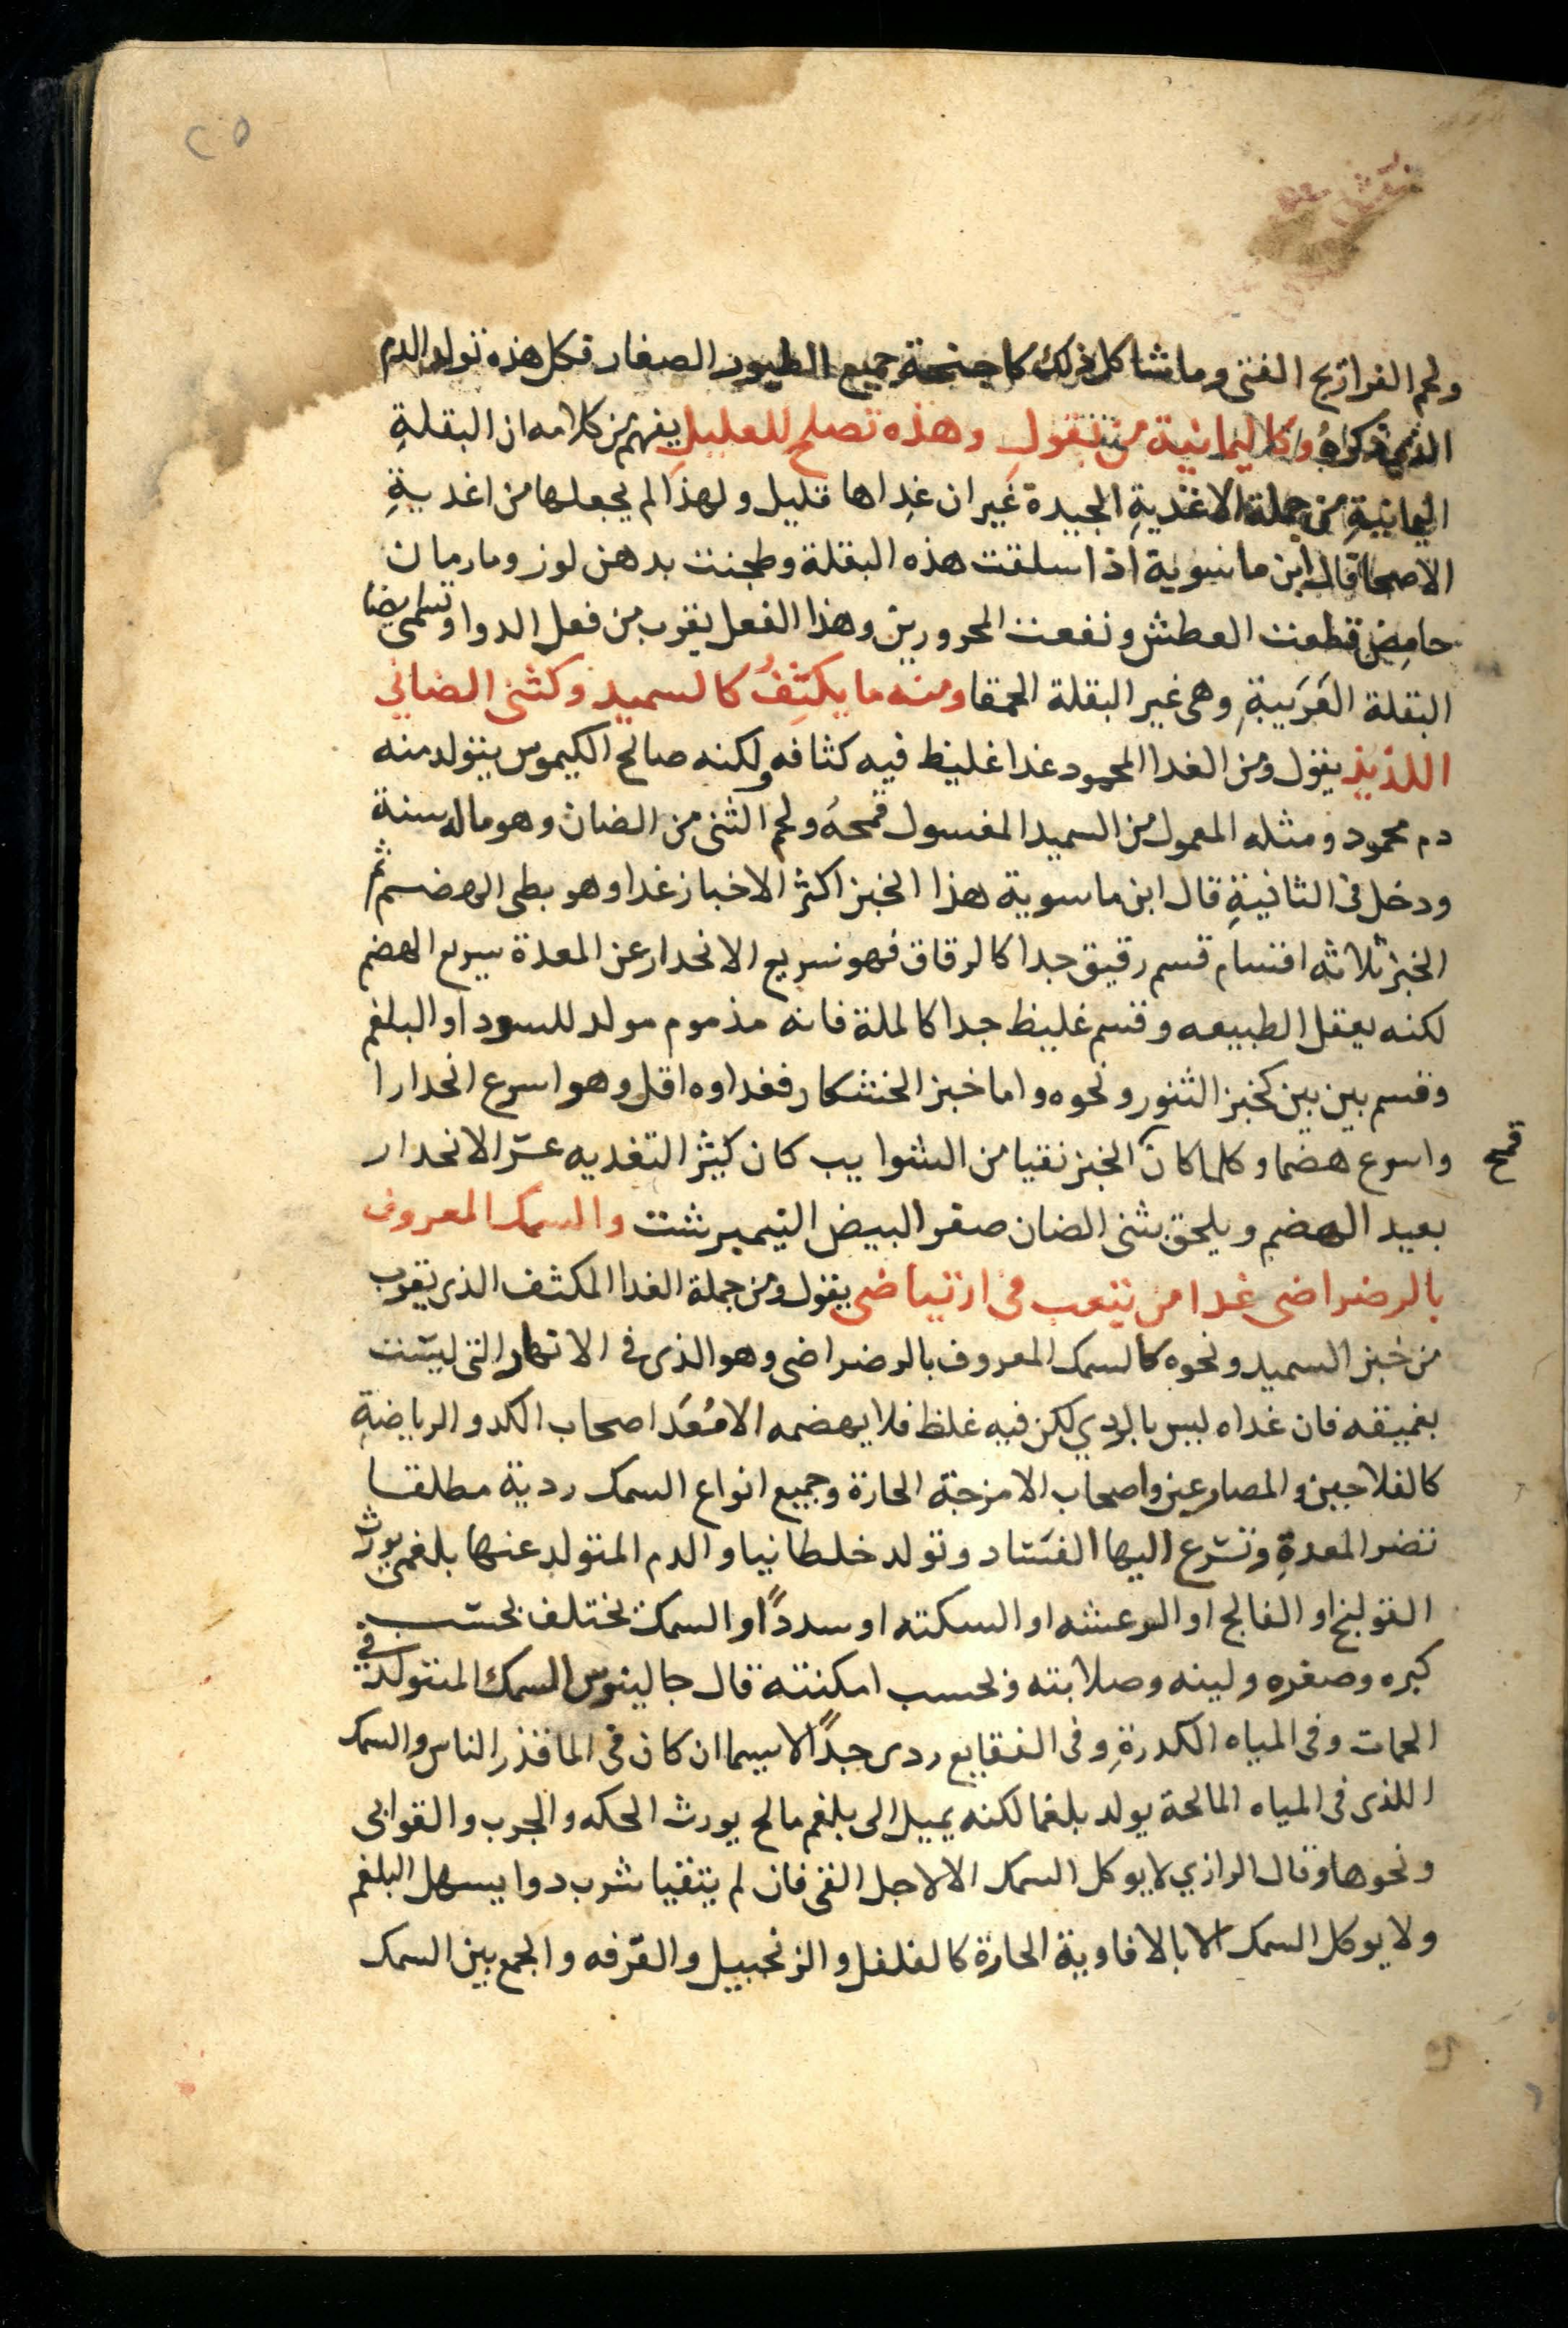 ٢٥
ولحم الفراريج الفتى وما شاكل ذلك كاجنحة جميع الطيور الصغار فكل هذه تولد الدم
الذي ذكراه وكاليمانية من بقول وهذه تصلح للعليل يفهم من كلامه ان البقلة
اليمانية من جملة الاغذية الجيدة غير ان غداها قليل ولهذا لم يجعلها من اغدية
الاصحا قال ابن ماسوية اذا سلقت هذه البقلة وطجنت بدهن لوز ومارمان
حامض قطعت العطش ونفعت المحرورين وهذا الفعل يقرب من فعل الدوا وتسمى ايضا
البقلة العربية وهى غير البقلة الحمقا ومنه ما يكثف كالسميد وكثنى الضاني
اللذيذ يقول ومن الغدا المحمود غدا غليظ فيه كثافه ولكنه صالح الكيموس يتولد منه
دم محمود ومثله المعمول من السميد المغسول قمحه ولحم الثنى من الضان وهو ماله سنة
ودخل فى الثانية قال ابن ماسوية هذا الخبز اكثر الاخباز غدا وهو بطى الهضم ثم
الخبز ثلاثه اقسام قسم رقيق جدا كالرقاق فهو سريع الانحدار عن المعدة سريع الهضم
لكنه يعقل الطبيعه وقسم غليظ جدا كالملة فانه مذموم مولد للسودا والبلغم
وقسم بين بين كخبز التنور ونحوه واما خبز الخشكار فغداوه اقل وهو اسرع انحدارا
واسرع هضما وكلما كان الخبز نقيا من الشوايب كان كثير التغديه عسر الانحدار
قمح
بعيد الهضم ويلحق بثنى الضان صفر البيض النيمبرشت والسمك المعروف
بالرضراضى غدا من يتعب فى ارتياضى يقول ومن جملة الغدا المكثف الذى يقرب
من خبز السميد ونحوه كالسمك المعروف بالرضراضى وهو الذى فى الانهار التى ليست
بعميقه فان غداه ليس بالردي لكن فيه غلظ فلا يهضمه الا معد اصحاب الكد والرياضة
كالفلاحين والمصارعين واصحاب الامزجة الحارة وجميع انواع السمك ردية مطلقا
تضر المعدة وتسرع اليها الفساد وتولد خلطا نيا والدم المتولد عنها بلغمى يورث
القولنج او الفالج او الرعشه او السكته او سددا والسمك يختلف بحسب
كبره وصغره ولينه وصلابته وبحسب امكنته قال جالينوس السمك المتولد فى
الحمات وفى المياه الكدرة وفى الفقايع ردى جدا لاسيما ان كان فى الما قذر الناس والسمك
اللذى فى المياه المالحة يولد بلغما لكنه يميل الى بلغم مالح يورث الحكه والجرب والقوابى
ونحوها وقال الرازي لا يوكل السمك الا لاجل القى فان لم يتقيا شرب دوا يسهل البلغم
ولا يوكل السمك الا بالافاوية الحارة كالفلفل والزنجبيل والقرفه والجمع بين السمك